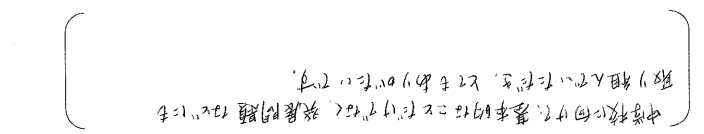 中高校に向けて、基本的なことだけでなく、発展問題などにも
取り組んでいただき、とてもありがたいです。